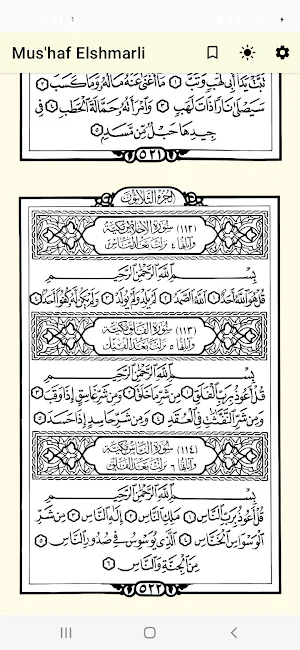 1
Mus'haf Elshmarli
تَبَّتْ يَدَا أَبِي لَهَبٍ وَتَبَّ ١ مَا أَغْنَى عَنْهُ مَالُهُ وَمَا كَسَبَ ٢
سَيَصْلَى نَارًا ذَاتَ لَهَبٍ ٣ وَامْرَأَتُهُ حَمَّالَةَ الْحَطَبِ ٤ فِي
جِيدِهَا حَبْلٌ مِّن مَّسَدٍ ٥
٥٢١
الجزء الثلاثون
(١١٢) سورة الإخلاص مكية
وآياتها ٤ نزلت بعد الناس
بِسْمِ اللَّهِ الرَّحْمَنِ الرَّحِيمِ
قُلْ هُوَ اللَّهُ أَحَدٌ ١ اللَّهُ الصَّمَدُ ٢ لَمْ يَلِدْ وَلَمْ يُولَدْ ٣ وَلَمْ يَكُن لَّهُ كُفُوًا أَحَدٌ ٤
(١١٣) سورة الفلق مكية
وآياتها ٥ نزلت بعد الفيل
بِسْمِ اللَّهِ الرَّحْمَنِ الرَّحِيمِ
قُلْ أَعُوذُ بِرَبِّ الْفَلَقِ ١ مِن شَرِّ مَا خَلَقَ ٢ وَمِن شَرِّ غَاسِقٍ إِذَا وَقَبَ ٣
وَمِن شَرِّ النَّفَّاثَاتِ فِي الْعُقَدِ ٤ وَمِن شَرِّ حَاسِدٍ إِذَا حَسَدَ ٥
(١١٤) سورة الناس مكية
وآياتها ٦ نزلت بعد الفلق
بِسْمِ اللَّهِ الرَّحْمَنِ الرَّحِيمِ
قُلْ أَعُوذُ بِرَبِّ النَّاسِ ١ مَلِكِ النَّاسِ ٢ إِلَهِ النَّاسِ ٣ مِن شَرِّ
الْوَسْوَاسِ الْخَنَّاسِ ٤ الَّذِي يُوَسْوِسُ فِي صُدُورِ النَّاسِ ٥
مِنَ الْجِنَّةِ وَالنَّاسِ ٦
٥٢٢